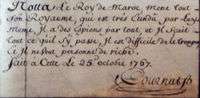 Notta / Le Roy de Maroc mene tout
son Royaume, qui est tres Etendu, par Luy
Meme, Il a des Espions par tout, et Il sçait
tout ce qui s'y passe, Il est difficile de le tromper
et Il ne veut personne de riche
fait a Cette Le 25 octobre 1767.